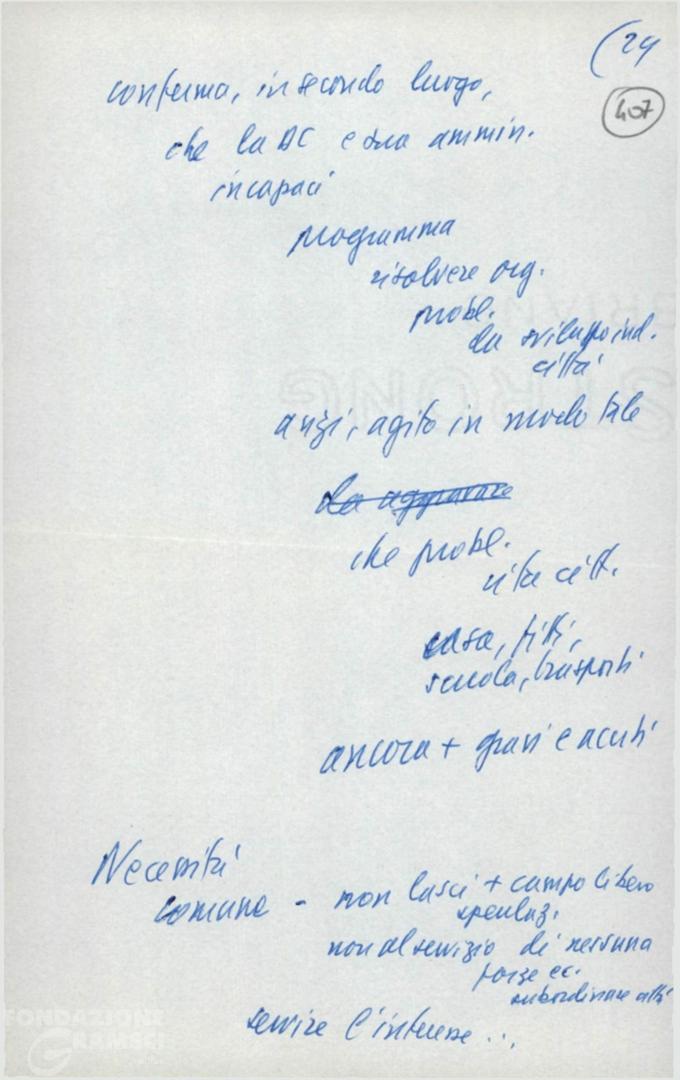 (24
407
conferma, in secondo luogo,
che la DC e sua ammin.
incapaci
programma
risolvere org.
probl.
da sviluppo ind.
città
anzi, agito in modo tale
da aggravare
che probl.
vita citt.
casa, fitti,
scuola, trasporti
ancora + gravi e acuti
Necessità
comune - non lasci + campo libero
speculaz.
non al servizio di nessuna
forze ec.
subordinare
servire l'interesse ...
FONDAZIONE
GRAMSCI